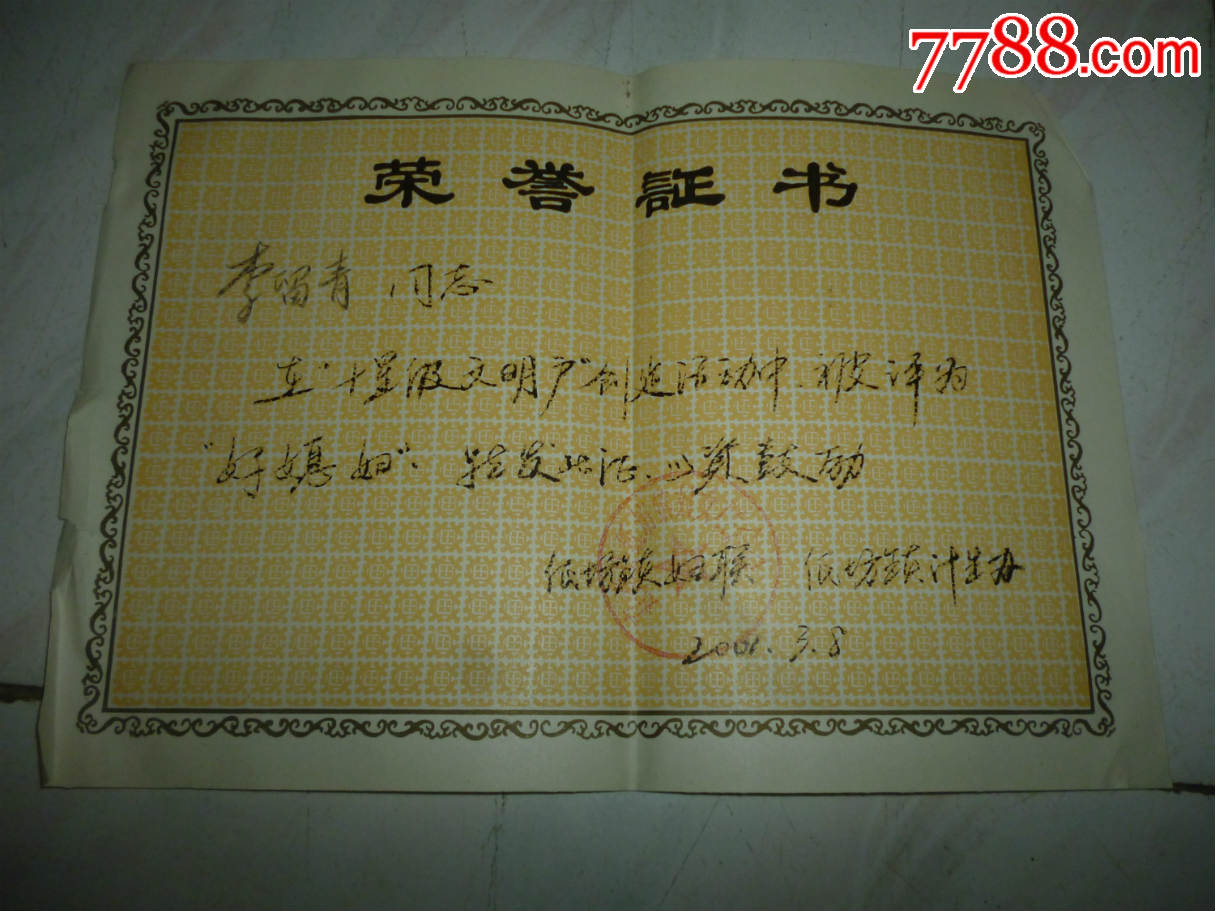 7788.com
荣誉証书
李留青 同志
在"十星级文明户"创建活动中、被评为
"好媳妇"、特发此证、以资鼓励
纸坊镇妇联 纸坊镇计生办
2001.3.8